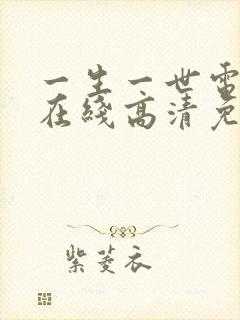 一生一世電
在綫高清免
紫菱衣